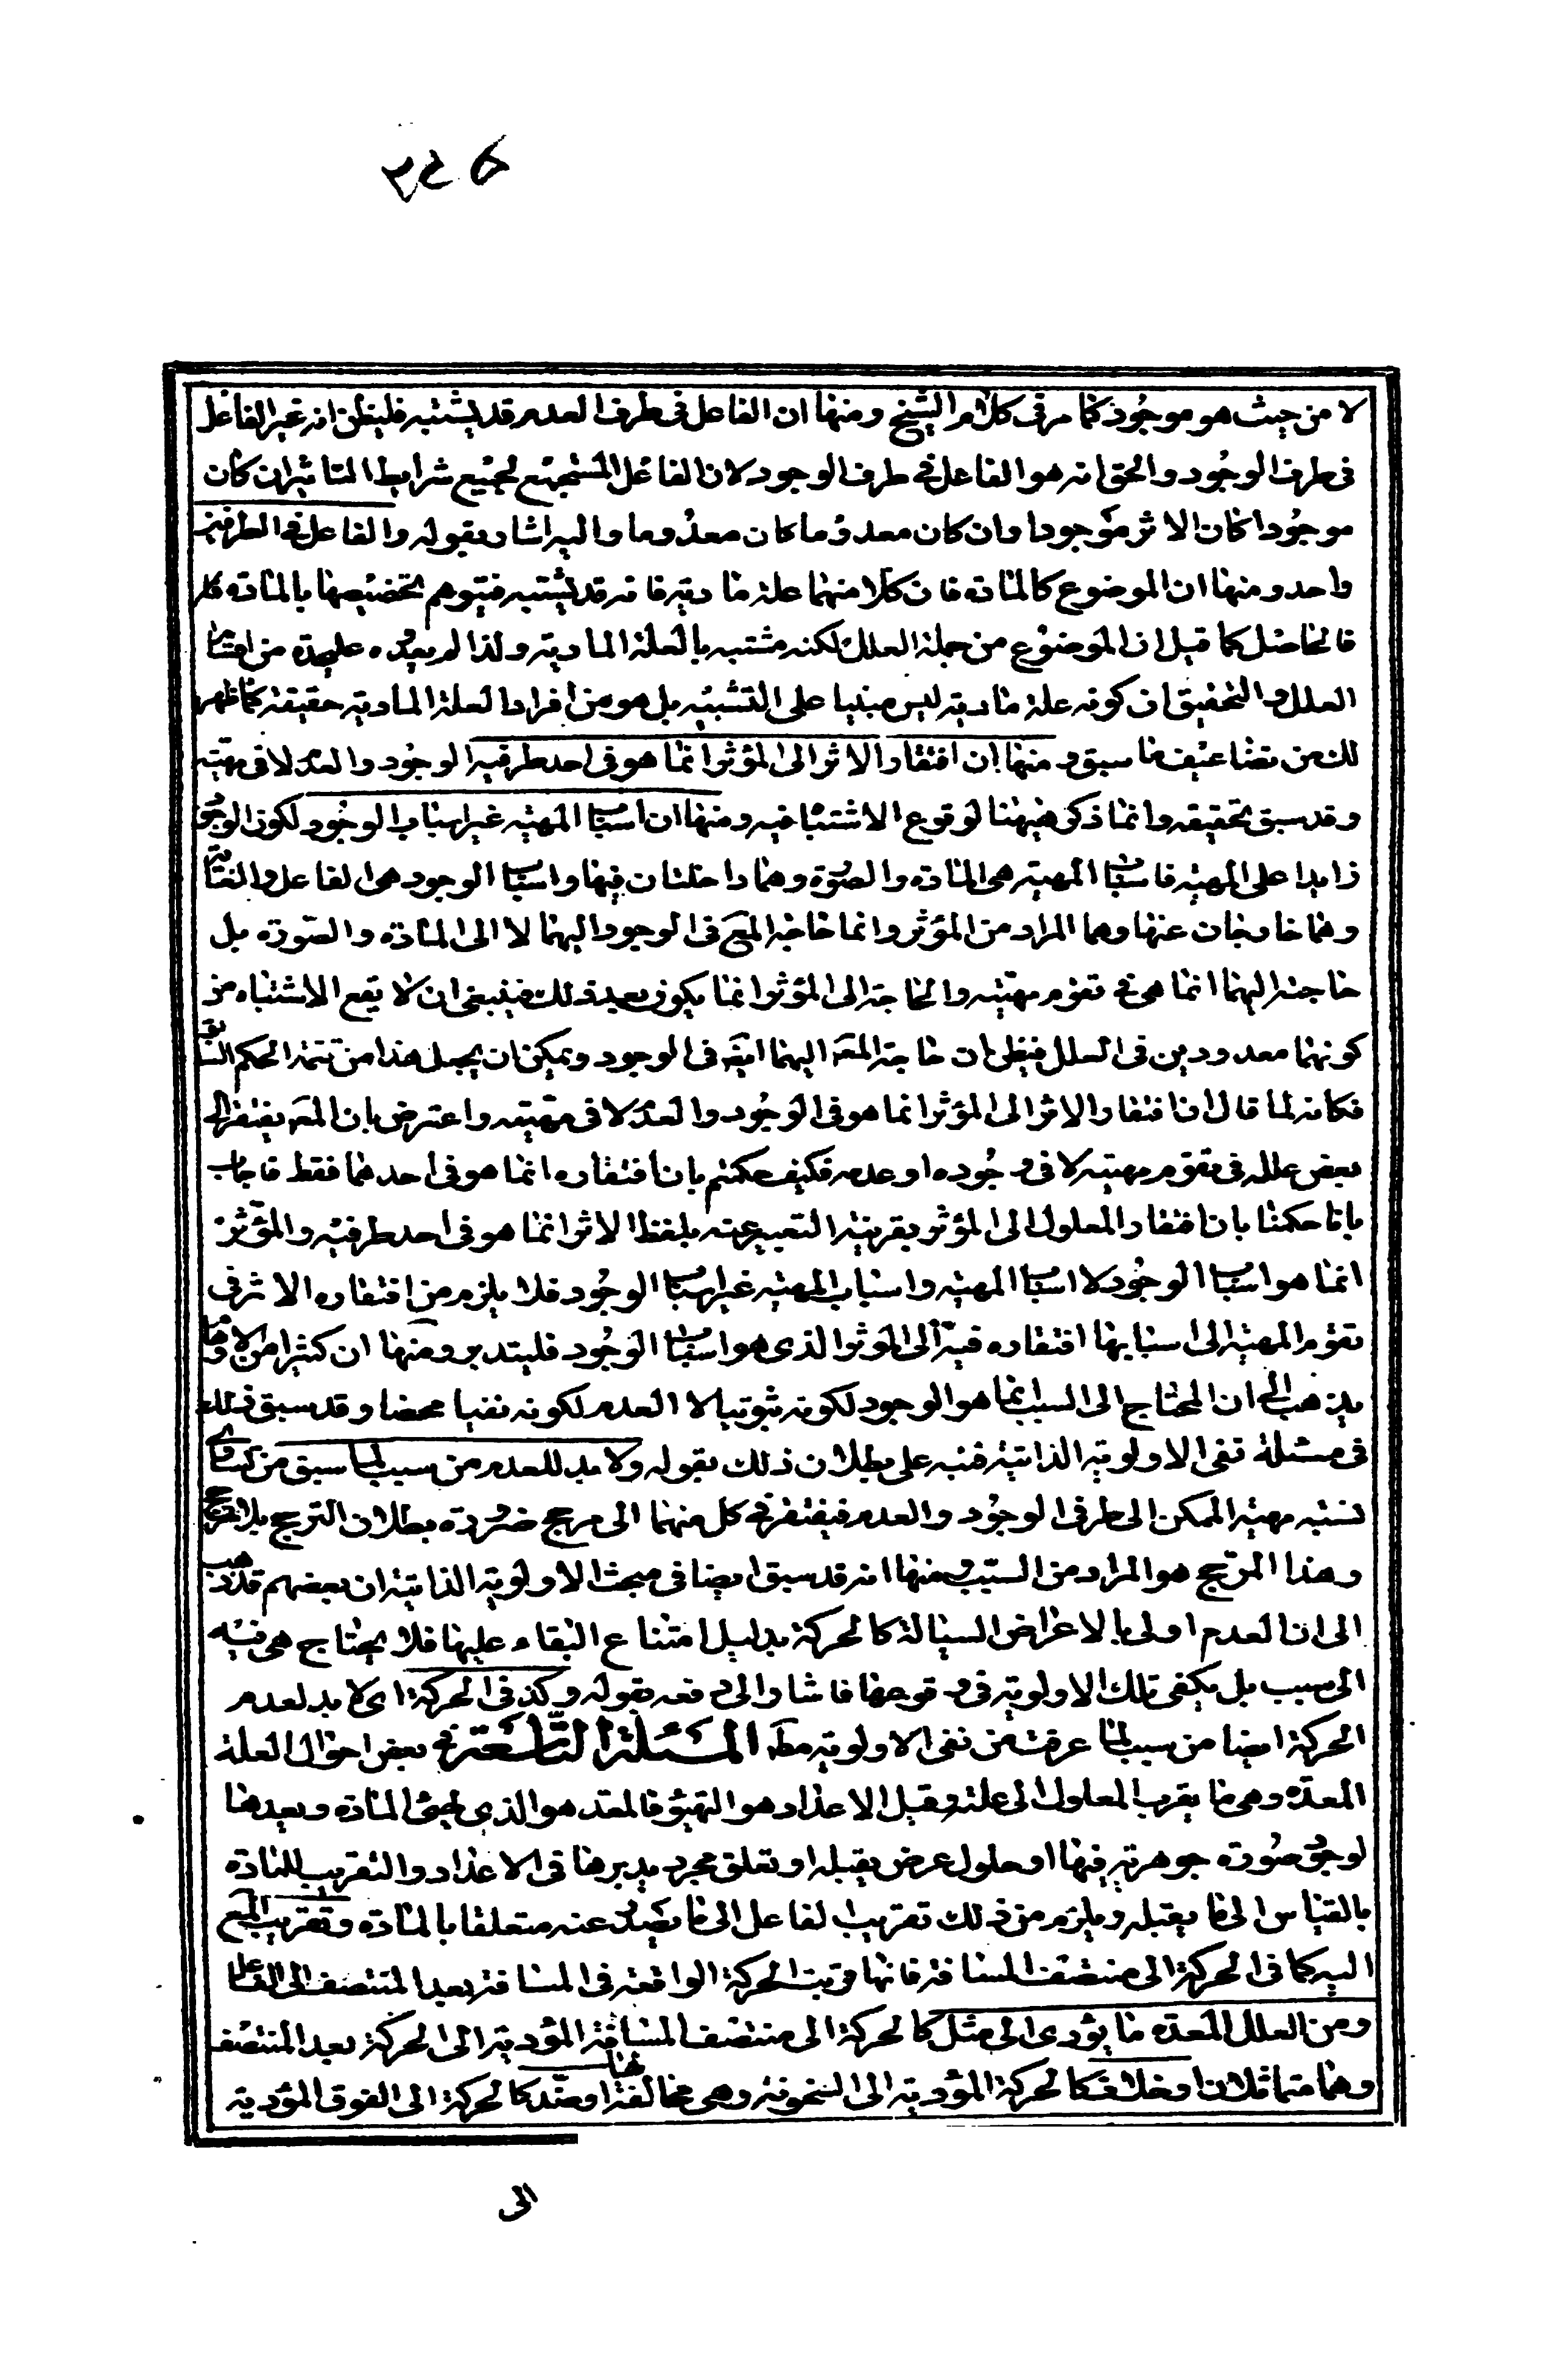 لا من حيث هو موجود كما مر فى كلام الشيخ ومنها ان الفاعل فى طرف العدم قد يشتبه فليظن انه غير الفاعل
فى طرف الوجود والحق انه هو الفاعل فى طرف الوجود لان الفاعل المستجمع لجميع شرايط التاثير ان كان
موجودا كان الاثر موجودا وان كان معدوما كان معدوما واليه اشار بقوله والفاعل فى الطرفين
واحد ومنها ان الموضوع كالمادة فان كلا منهما علة مادية فانه قد يشتبه فتيوهم تخصيصها بالمادة
فالحاصل كما قيل ان الموضوع من جملة العلل لكنه مشتبه بالعلة المادية ولذا لم يعدده عليحدة من اقسام
العلل والتحقيق ان كونه علة مادية ليس مبنيا على التشبيه بل هو من افراد العلة المادية حقيقة كما ظهر
لك من تضاعيف ما سبق ومنها ان افتقار الاثر الى المؤثر انما هو فى احد طرفيه الوجود والعدم لا فى مهيته
وقد سبق تحقيقه وانما ذكر هيهنا لوقوع الاشتباه فيه ومنها ان اسباب المهية غير اسباب الوجود لكون الوجود
زايدا على المهية فاسباب المهية هى المادة والصورة وهما داخلتان فيها واسباب الوجود هى الفاعل والغاية
وهما خارجان عنها وهما المراد من المؤثر وانما حاجة المع فى الوجود اليهما لا الى المادة والصورة بل
حاجته اليهما انما هى فى تقوم مهيته والحاجة الى المؤثر انما يكون بعد ذلك فينبغى ان لا يقع الاشتباه من
كونهما معدودين فى العلل فيظن ان حاجة المعـ اليهما ايضـ فى الوجود ويمكن ان يجعل هذا من تتمة الحكم السابق
فكانه لما قال ان افتقار الاثر الى المؤثر انما هو فى الوجود والعدم لا فى مهيته واعترض بان المعـ يفتقر الى
بعض علله فى تقوم مهيته لا فى وجوده او عدمه فكيف حكمتم بان افتقاره انما هو فى احدهما فقط فاجاب
بانا حكمنا بان افتقار المعلول الى المؤثر بقرينة التعبير عنه بلفظ الاثر انما هو فى احد طرفيه والمؤثر
انما هو اسباب الوجود لا اسباب المهية واسباب المهية غير اسباب الوجود فلا يلزم من افتقاره الاثر فى
تقوم المهية الى اسبابها افتقاره فيه الى المؤثر الذى هو اسباب الوجود فليتدبر ومنها ان كثيرا من الاوهام
يذهب الى ان المحتاج الى السبب انما هو الوجود لكونه ثبوتيا لا العدم لكونه نفيا محضا وقد سبق ذلك
فى مسئلة نفى الاولوية الذاتية فنبه على بطلان ذلك بقوله ولا بد للعدم من سبب لما سبق من تساوى
نسبة مهية الممكن الى طرفى الوجود والعدم فيفتقر فى كل منهما الى مرجح ضرورة بطلان الترجح بلا مرجح
وهذا المرجح هو المراد من السبب ومنها انه قد سبق ايضا فى مبحث الاولوية الذاتية ان بعضهم قد ذهب
الى ان العدم اولى بالاعراض السيالة كالحركة بدليل امتناع البقاء عليها فلا يحتاج هى فيه
الى سبب بل يكفى تلك الاولوية فى وقوعها فاشار الى دفعه بقوله وكذا فى الحركة اى لا بد لعدم
الحركة ايضا من سبب لما عرفت من نفى الاولوية مطـ المسئلة التاسعة فى بعض احوال العلة
المعدة وهى ما يقرب المعلول الى علته وقيل الاعداد هو التهيؤ فالمعد هو الذى يهيئ المادة ويعيدها
لوجود صورة جوهرية فيها او حلول عرض يقبله او تعلق مجرد يدبرها فى الاعداد والتقريب للمادة
بالقياس الى ما يقبله ويلزم من ذلك تقريب الفاعل الى ما يصدر عنه متعلقا بالمادة وتقريب المع
اليه كما فى الحركة الى منتصف المسافة فانها قربت الحركة الواقعة فى المسافة بعد المنتصف الى الفاعل
ومن العلل المعدة ما يؤدى الى مثل كالحركة الى منتصف المسافة المؤدية الى الحركة بعد المنتصف
وهما متماثلان او خلاف كالحركة المؤدية الى السخونة وهى مخالفة لها او ضد كالحركة الى الفوق المؤدية
الى